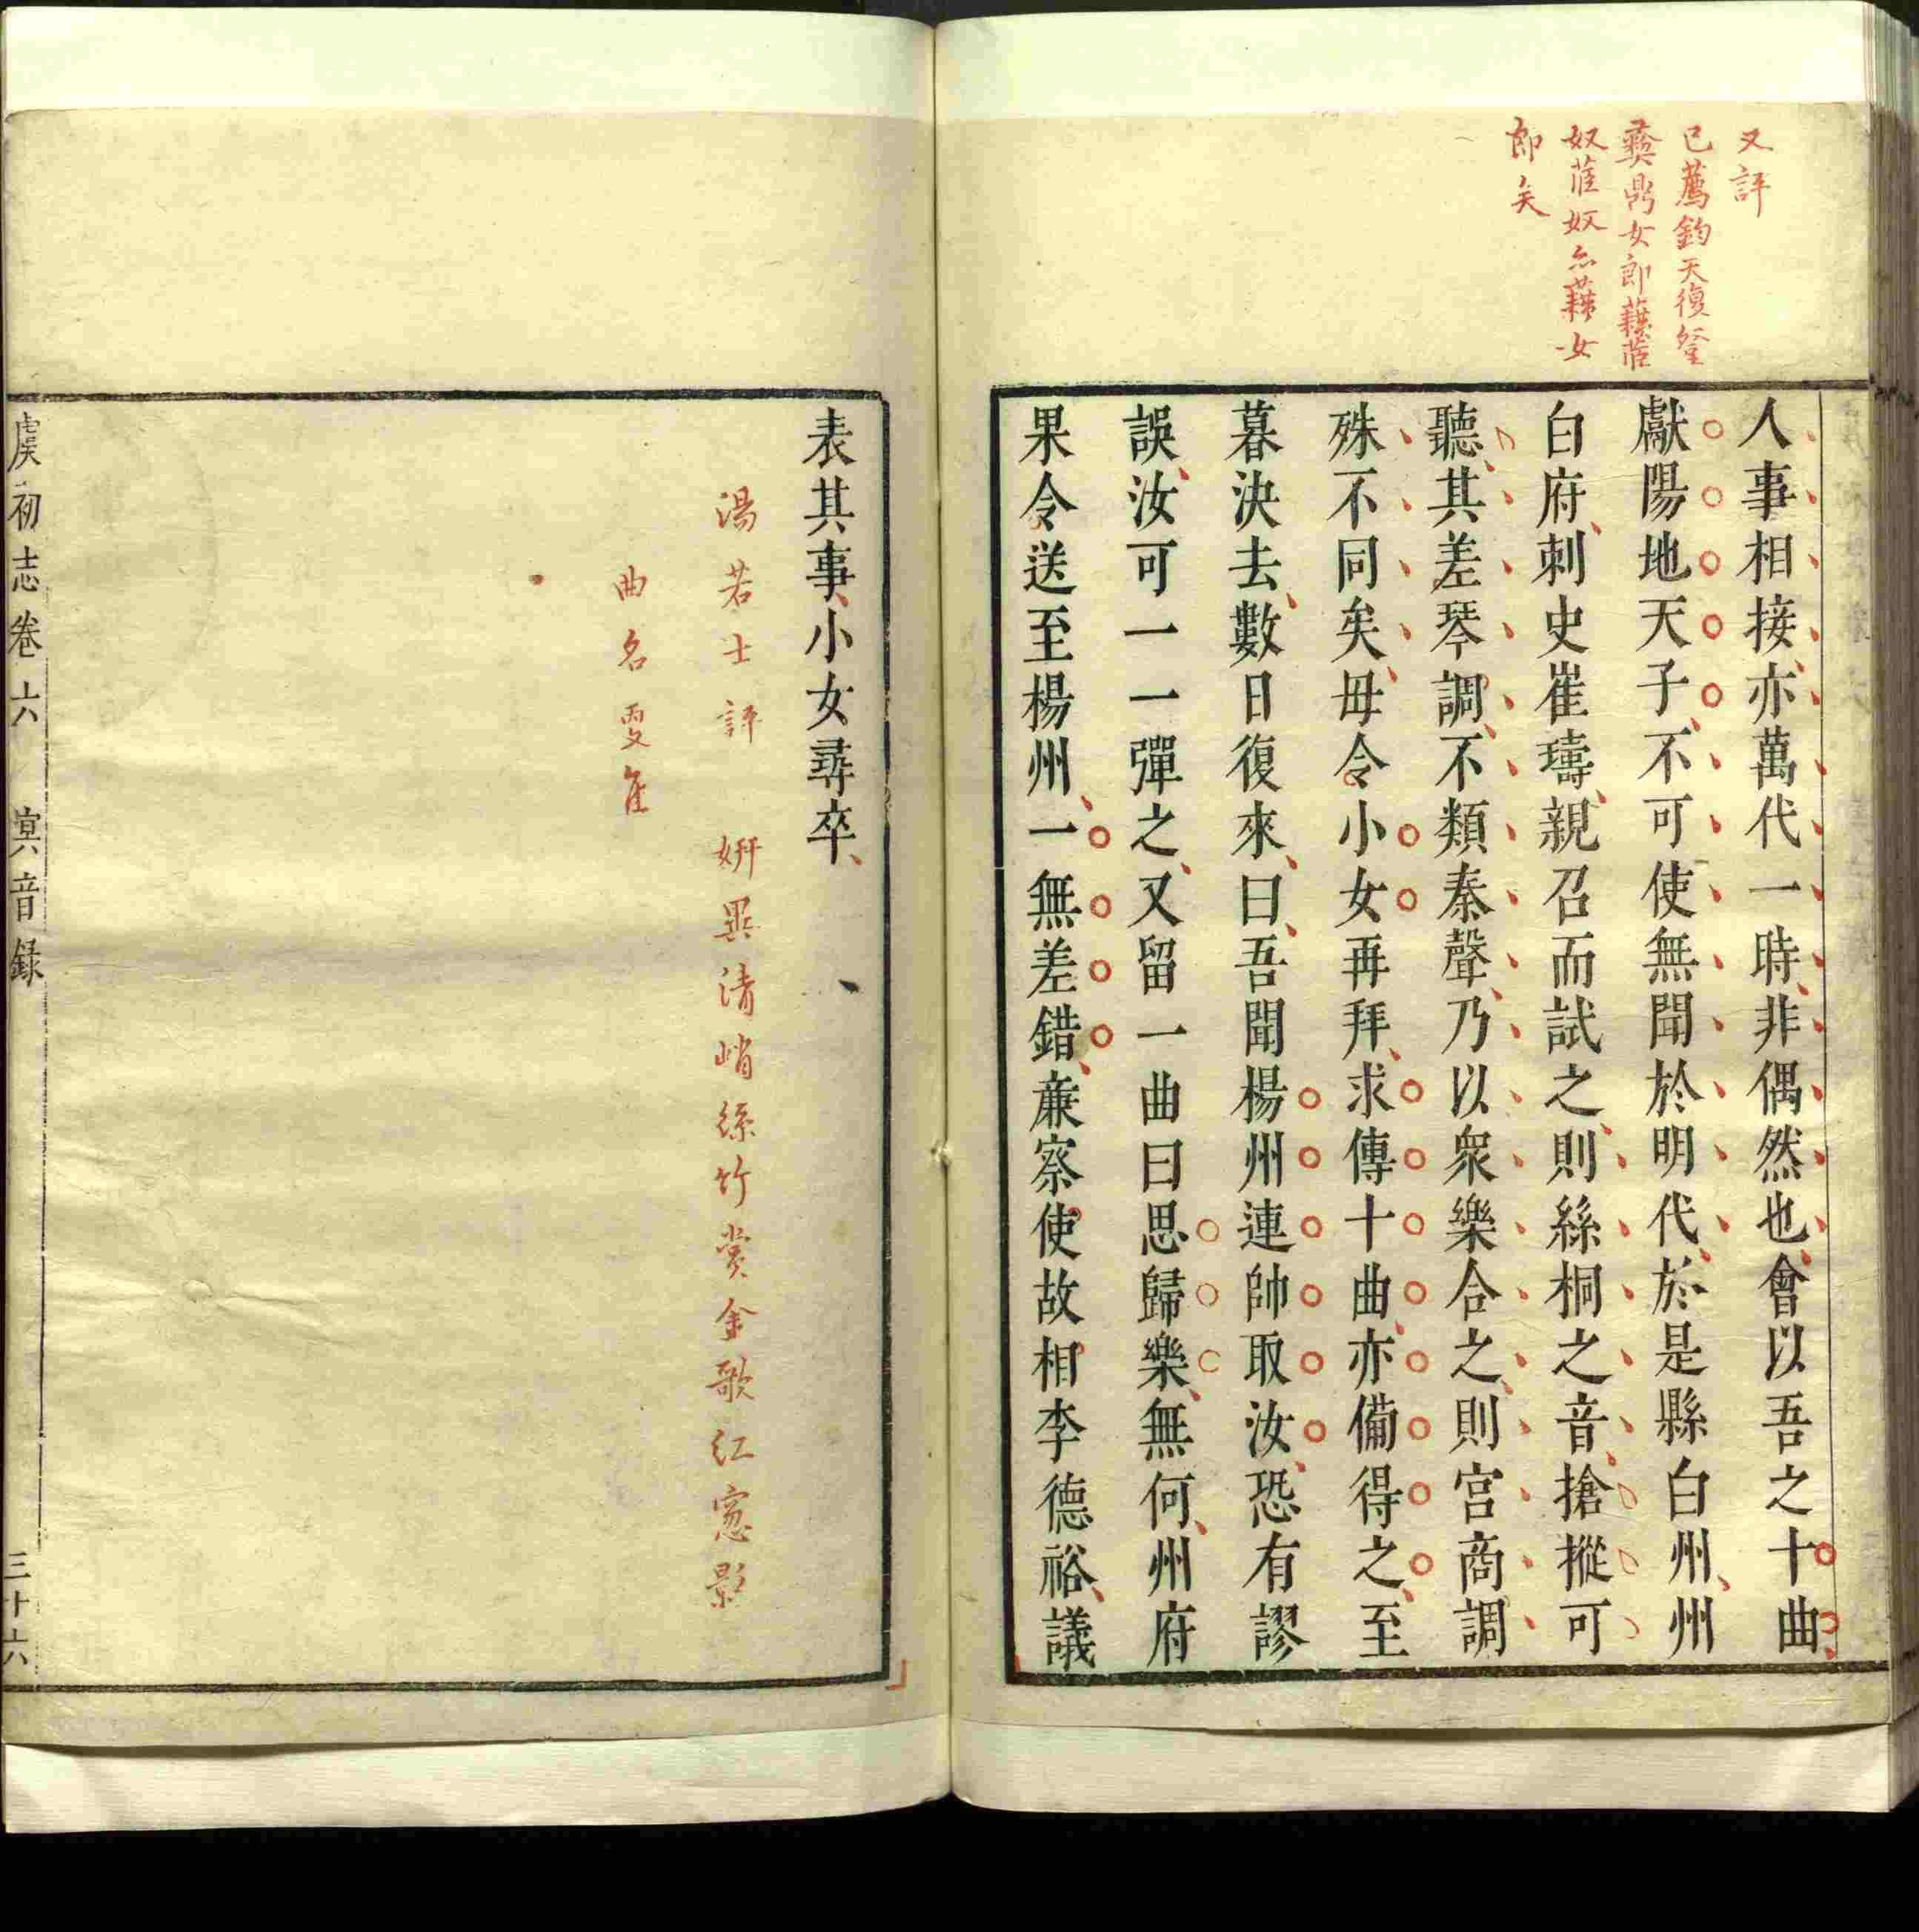 又評
已薦鈞天復登
彝鼎女郎藉𦸉
奴𦸉奴亦藉女
郎矣
人事相接亦萬代一時非偶然也會以吾之十曲
獻陽地天子不可使無聞於明代於是縣白州州
白府刺史崔璹親召而試之則絲桐之音搶摐可
聽其差琴調不類秦聲乃以衆樂合之則宮商調
殊不同矣毋令小女再拜求傳十曲亦備得之至
暮決去數日復來曰吾聞楊州連帥取汝恐有謬
誤汝可一一彈之又留一曲曰思歸樂無何州府
果令送至楊州一無差錯廉察使故相李德裕議
表其事小女尋卒
湯若士評　妍異清峭絲竹賞金歌紅窓影
曲名雙隹
虞初志卷六　㝠音録　三十六